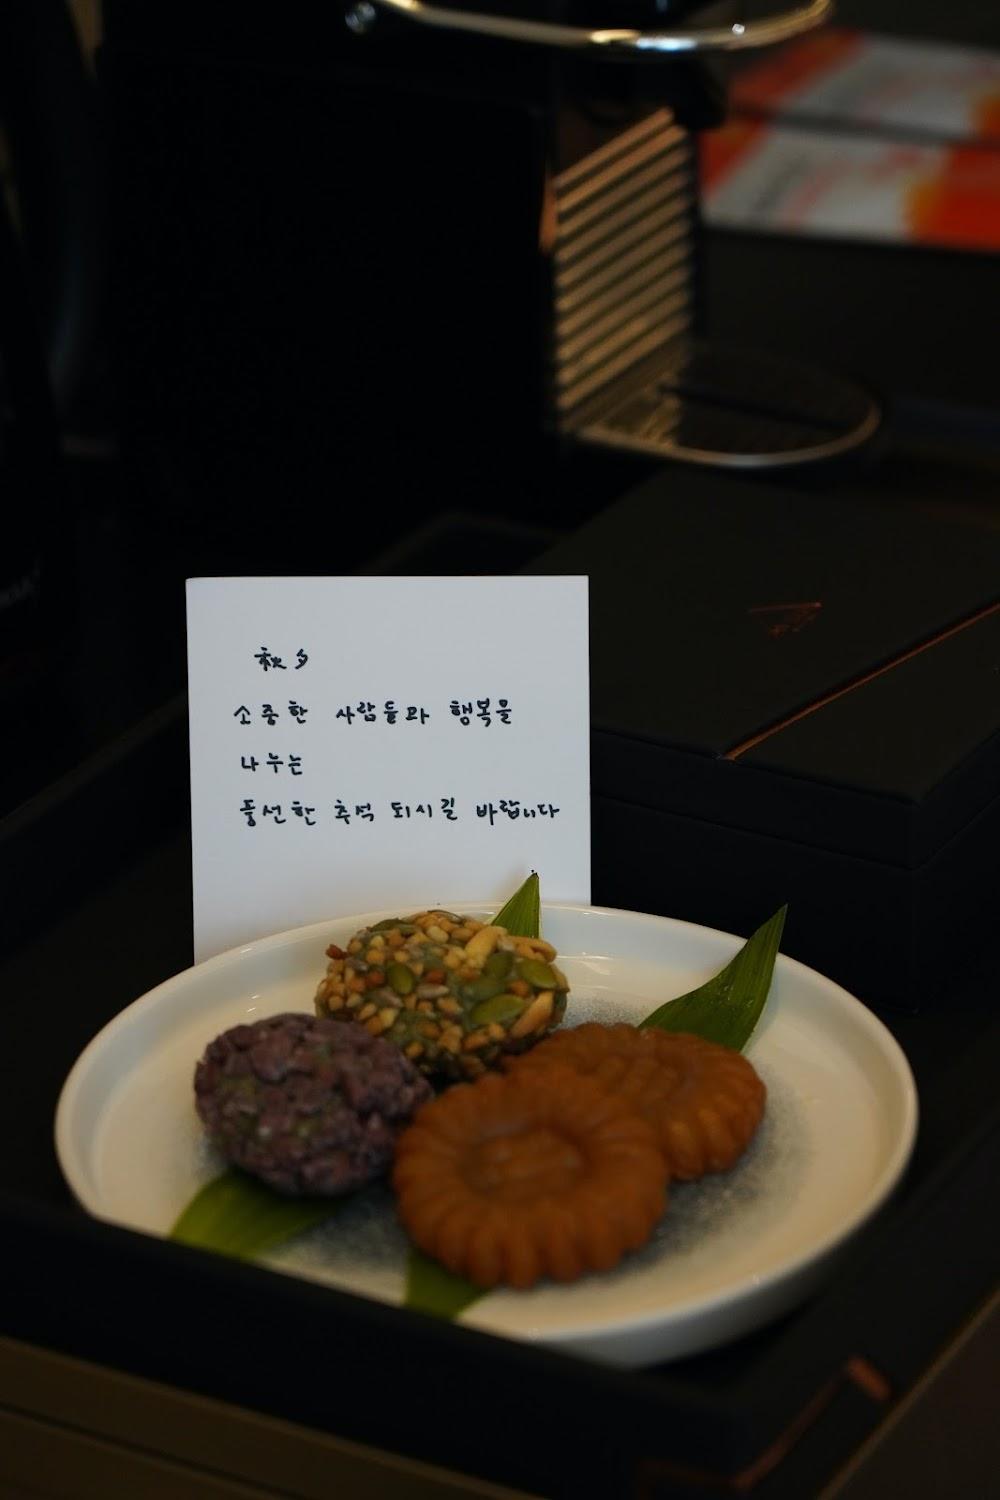 秋夕
소중한 사람들과 행복을
나누는
풍선한 추석 되시길 바랍니다